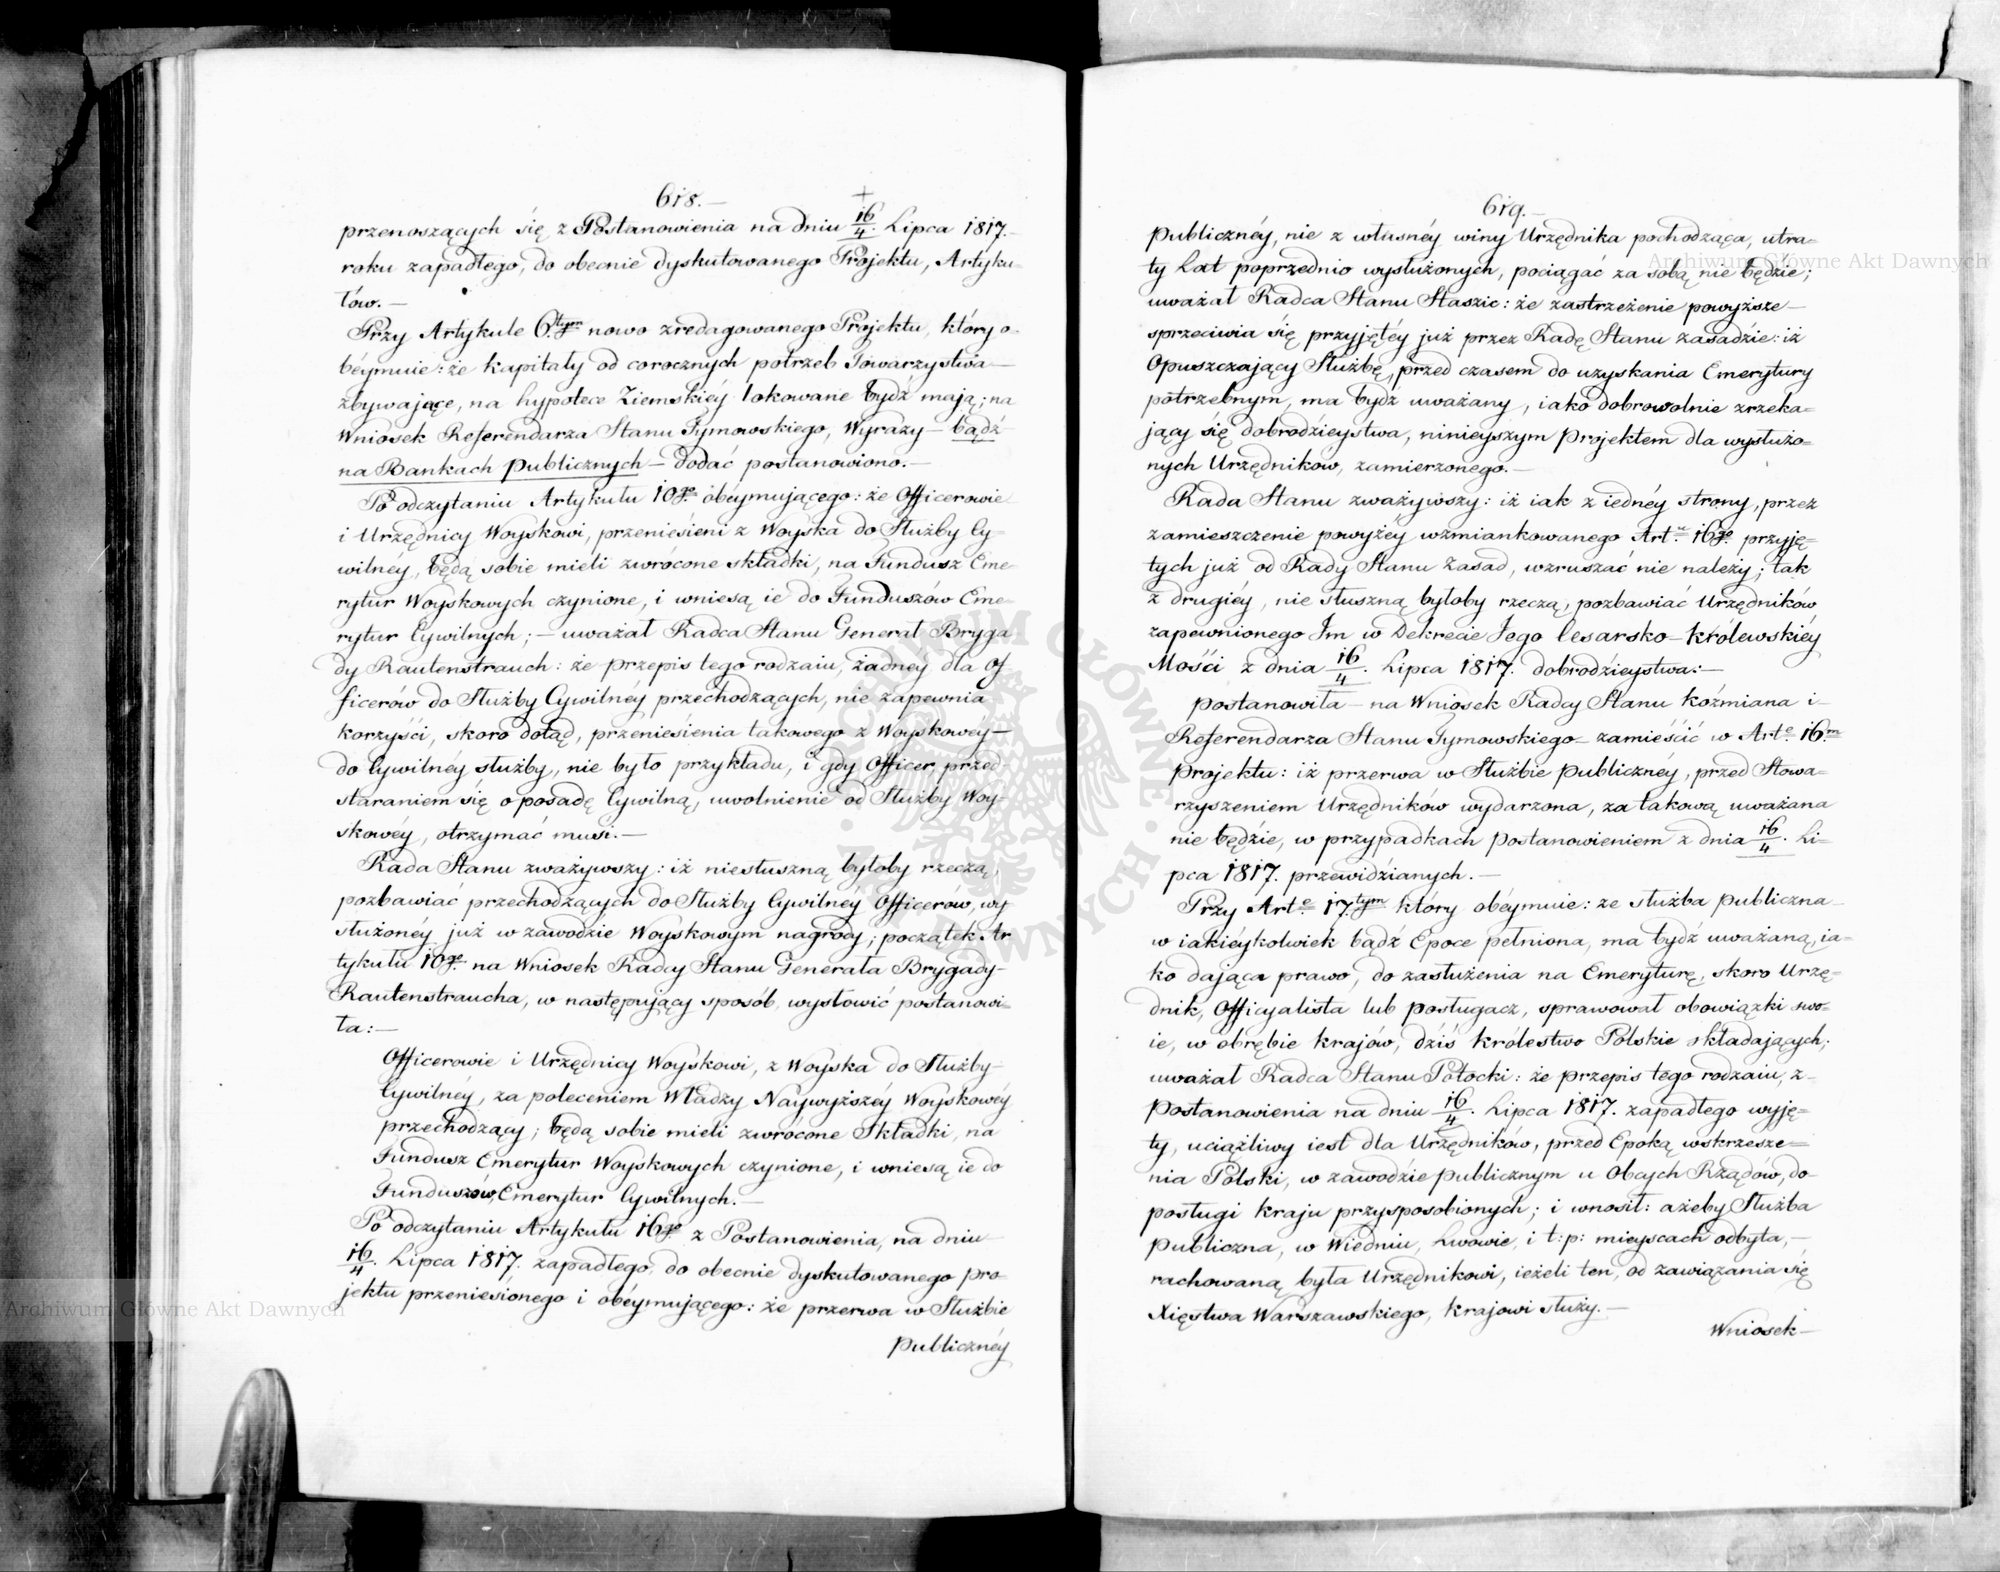 618.—
+
przenoszących się z Postanowienia na dniu 16/4. Lipca 1817.—
roku zapadłego, do obecnie dyskutowanego Projektu, Artyku-
łów.—
Przy Artykule 6.tym nowo zredagowanego Projektu, który o-
beymuie: że kapitały od corocznych potrzeb Towarzystwa—
zbywające, na hypotece Ziemskiéy lokowane bydź mają; na
Wniosek Referendarza Stanu Tymowskiego, Wyrazy— bądź
na Bankach publicznych— dodać postanowiono.—
Po odczytaniu Artykułu 10.go obeymującego: że Officerowie
i Urzędnicy Woyskowi, przeniesieni z Woyska do Służby Cy-
wilnéy, będą sobie mieli zwrócone składki, na Fundusz Eme-
rytur Woyskowych czynione, i wniesą ie do Funduszów Eme-
rytur Cywilnych;— uważał Radca Stanu Generał Bryga-
dy Rautenstrauch: że przepis tego rodzaiu, żadney dla Of-
ficerów do Służby Cywilnéy przechodzących, nie zapewnia
korzyści, skoro dotąd, przeniesienia takowego z Woyskowéy—
do Cywilnéy służby, nie było przykładu, i gdy Officer, przed
staraniem się o posadę Cywilną, uwolnienie od Służby Woy-
skowéy, otrzymać musi.—
Rada Stanu zważywszy: iż niesłuszną byłoby rzeczą,
pozbawiać przechodzących do Służby Cywilnéy Officerów, wy
służonéy już w zawodzie Woyskowym nagrody; początek Ar
tykułu 10.go na Wniosek Radcy Stanu Generała Brygady—
Rautenstraucha, w następujący sposób, wysłowić postanowi-
ła:—
Officerowie i Urzędnicy Woyskowi, z Woyska do Służby—
Cywilnéy, za poleceniem Władzy Naywyższéy Woyskowéy
przechodzący; będą sobie mieli zwrócone Składki, na
Fundusz Emerytur Woyskowych czynione, i wniesą ie do
Funduszów Emerytur Cywilnych.—
Po odczytaniu Artykułu 16.go z Postanowienia, na dniu
16/4. Lipca 1817. zapadłego, do obecnie dyskutowanego pro-
jektu przeniesionego i obeymującego: że przerwa w Służbie
publicznéy
619.—
publicznéy, nie z własnéy winy Urzędnika pochodząca, utra-
ty Lat poprzednio wysłużonych, pociągać za sobą nie będzie;
uważał Radca Stanu Staszic: że zastrzeżenie powyższe—
sprzeciwia się przyjętéy już przez Radę Stanu zasadzie: iż
Opuszczający Służbę, przed czasem do uzyskania Emerytury
potrzebnym, ma bydź uważany, iako dobrowolnie zrzeka-
jący się dobrodzieystwa, ninieyszym projektem dla wysłużo-
nych Urzędników, zamierzonego.—
Rada Stanu zważywszy: iż iak z iednéy strony, przez
zamieszczenie powyżéy wzmiankowanego Art.u 16.go przyję-
tych już od Rady Stanu Zasad, wzruszać nie należy; tak
z drugiéy, nie słuszną byłoby rzeczą, pozbawiać Urzędników
zapewnionego Im w Dekrecie Jego Cesarsko-Królewskiéy
Mości z dnia 16/4. Lipca 1817. dobrodzieystwa:—
postanowiła— na Wniosek Radcy Stanu Koźmiana i—
Referendarza Stanu Tymowskiego— zamieścić w Art.e 16.m
projektu: iż przerwa w Służbie publicznéy, przed Stowa-
rzyszeniem Urzędników wydarzona, za takową uważana
nie będzie, w przypadkach Postanowieniem z dnia 16/4. Li-
pca 1817. przewidzianych.—
Przy Art.e 17.tym który obeymuie: że służba publiczna—
w iakiéykolwiek bądź Epoce pełniona, ma bydź uważaną, ia-
ko dająca prawo, do zasłużenia na Emeryturę, skoro Urzę-
dnik, Officyalista lub posługacz, sprawował obowiązki swo-
ie, w obrębie krajów, dziś królestwo Polskie składających;
uważał Radca Stanu Potocki: że przepis tego rodzaiu, z—
Postanowienia na dniu 16/4. Lipca 1817. zapadłego wyję-
ty, uciążliwy iest dla Urzędników, przed Epoką wskrzesze-
nia Polski, w zawodzie publicznym u Obcych Rządów, do
posługi kraju przysposobionych; i wnosił: ażeby Służba
publiczna, w Wiedniu, Lwowie, i t: p: mieyscach odbyta,—
rachowaną była Urzędnikowi, ieżeli ten, od zawiązania się
Xięstwa Warszawskiego, krajowi służy.—
Wniosek—
Archiwum Główne Akt Dawnych
Archiwum Główne Akt Dawnych
ARCHIWUM GŁÓWNE AKT DAWNYCH